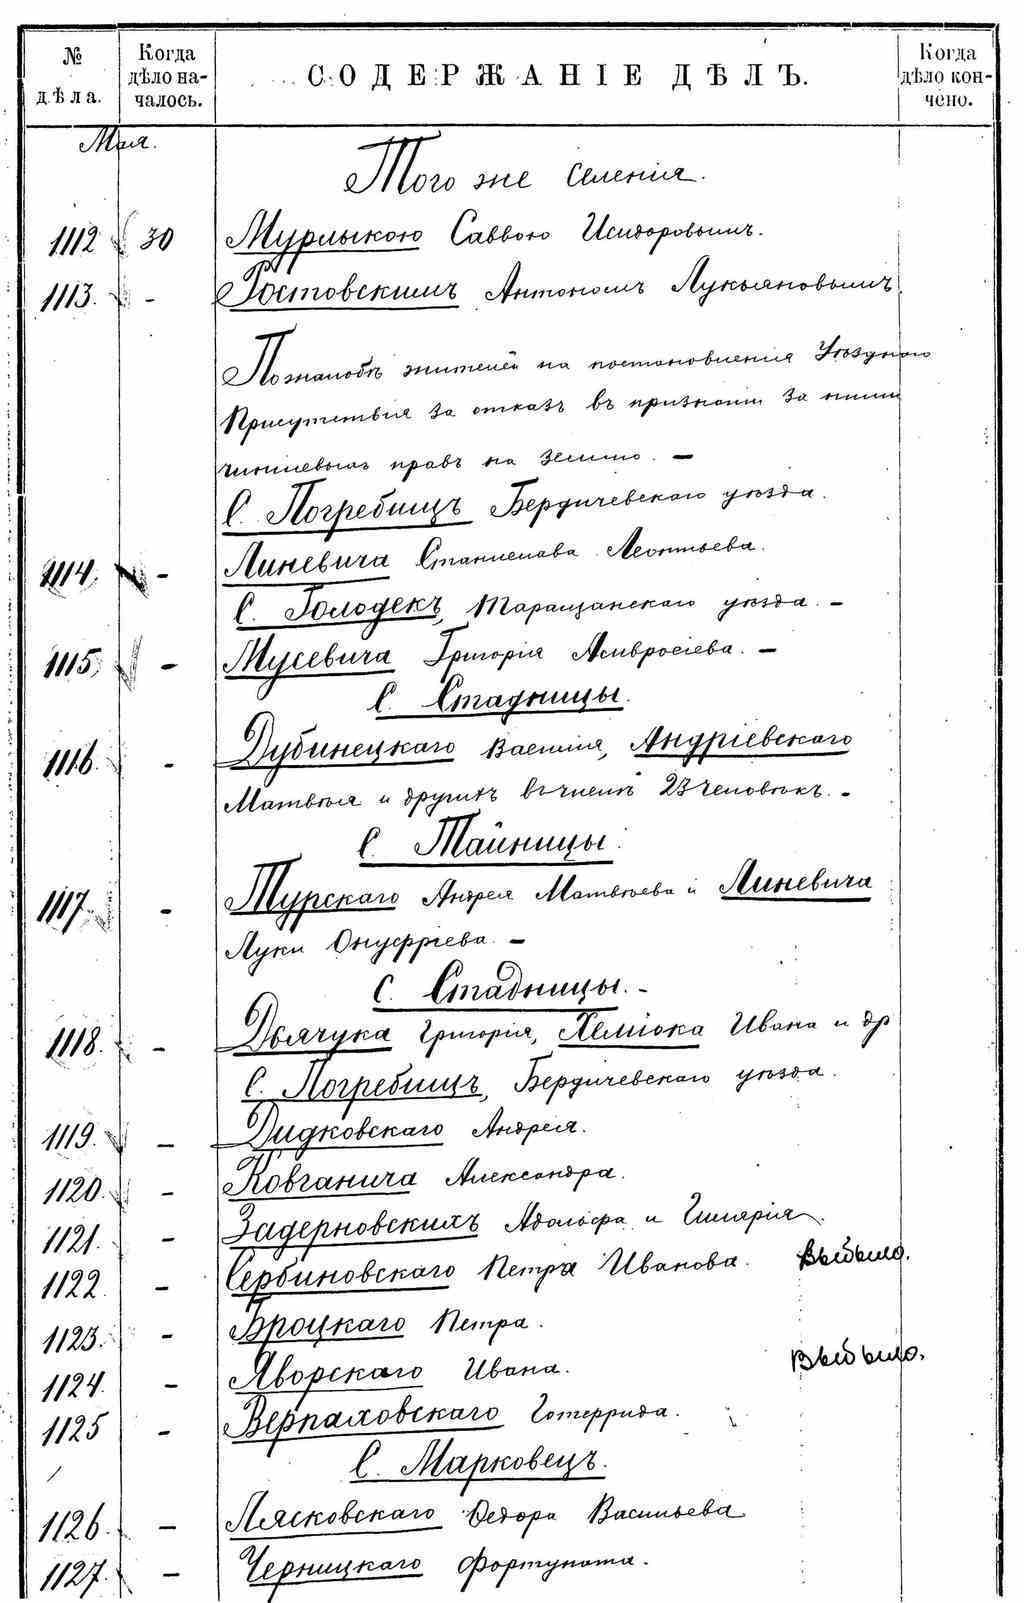 № дѣла. Когда дѣло началось. СОДЕРЖАНІЕ ДѢЛЪ. Когда дѣло кончено.
Мая.
Того же селенія.
1112 30 Мурлыкою Саввою Исидоровымъ.
1113. - Ростовскимъ Антономъ Лукьяновымъ.
По жалобѣ жителей на постановленія Уѣзднаго
Присутствія за отказъ въ признаніи за ними
чиншевыхъ правъ на землю. —
С. Погребищъ Бердичевскаго уѣзда.
1114. - Линевича Станислава Леонтьева.
С. Голодекъ, Таращанскаго уѣзда. —
1115. - Мусевича Григорія Амвросіева. —
С. Стадницы.
1116. - Дубинецкаго Василія, Андріевскаго
Матвѣя и другихъ въ числѣ 23 человѣкъ. -
С. Тайницы.
1117. - Турскаго Андрея Матвѣева и Линевича
Луки Онуфріева. —
С. Стадницы. -
1118. - Дьячука Григорія, Хеміока Ивана и др
С. Погребищъ, Бердичевскаго уѣзда.
1119. - Дидковскаго Андрея.
1120. - Ковганича Александра.
1121. - Задерновскихъ Адольфа и Гилярія.
1122. - Сербиновскаго Петра Иванова. Выбыло.
1123. - Броцкаго Петра.
1124. - Яворскаго Ивана. Выбыло.
1125 - Верпаховскаго Готеррида.
С. Марковецъ.
1126. - Лясковскаго Ѳедора Васильева
1127. - Черницкаго Фортуната.